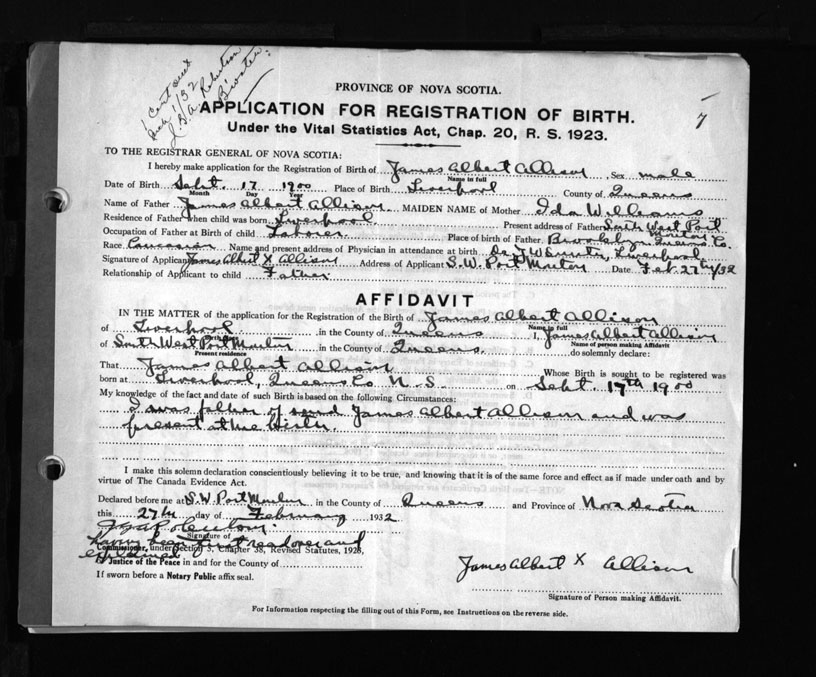 1 Cert
1/32
J.G.A. Robertson
PROVINCE OF NOVA SCOTIA.
7
APPLICATION FOR REGISTRATION OF BIRTH.
Under the Vital Statistics Act, Chap. 20, R. S. 1923.
TO THE REGISTRAR GENERAL OF NOVA SCOTIA:
I hereby make application for the Registration of Birth of James Albert Allison Sex male
Name in full
Date of Birth Sept. 17 1900 Place of Birth Liverpool County of Queens
Month Day Year
Name of Father James Albert Allison MAIDEN NAME of Mother Ida Williams
Residence of Father when child was born Liverpool Present address of Father South West Port Mouton
Occupation of Father at Birth of child Laborer Place of birth of Father Queens Co.
Race Caucasian Name and present address of Physician in attendance at birth Dr. J W Liverpool
Signature of Applicant James Albert X Allison Address of Applicant S.W. Port Mouton Date Feb. 27th/32
Relationship of Applicant to child Father
AFFIDAVIT
IN THE MATTER of the application for the Registration of the Birth of James Albert Allison
Name in full
of Liverpool in the County of Queens I, James Albert Allison
Name of person making Affidavit
of South West Port Mouton in the County of Queens. do solemnly declare:
Present residence
That James Albert Allison Whose Birth is sought to be registered was
born at Liverpool, Queens Co. N.S. on Sept. 17th 1900
My knowledge of the fact and date of such Birth is based on the following Circumstances:
I was father of said James Albert Allison and was
present at his birth.
I make this solemn declaration conscientiously believing it to be true, and knowing that it is of the same force and effect as if made under oath and by
virtue of The Canada Evidence Act.
Declared before me at S.W. Port Mouton in the County of Queens and Province of Nova Scotia
this 27th day of February 1932
J.G.A. Robertson
Signature of
having been first read over and
Commissioner, under Section 3, Chapter 38, Revised Statutes, 1923,
explained
Justice of the Peace in and for the County of
If sworn before a Notary Public affix seal.
James Albert X Allison
Signature of Person making Affidavit.
For Information respecting the filling out of this Form, see Instructions on the reverse side.